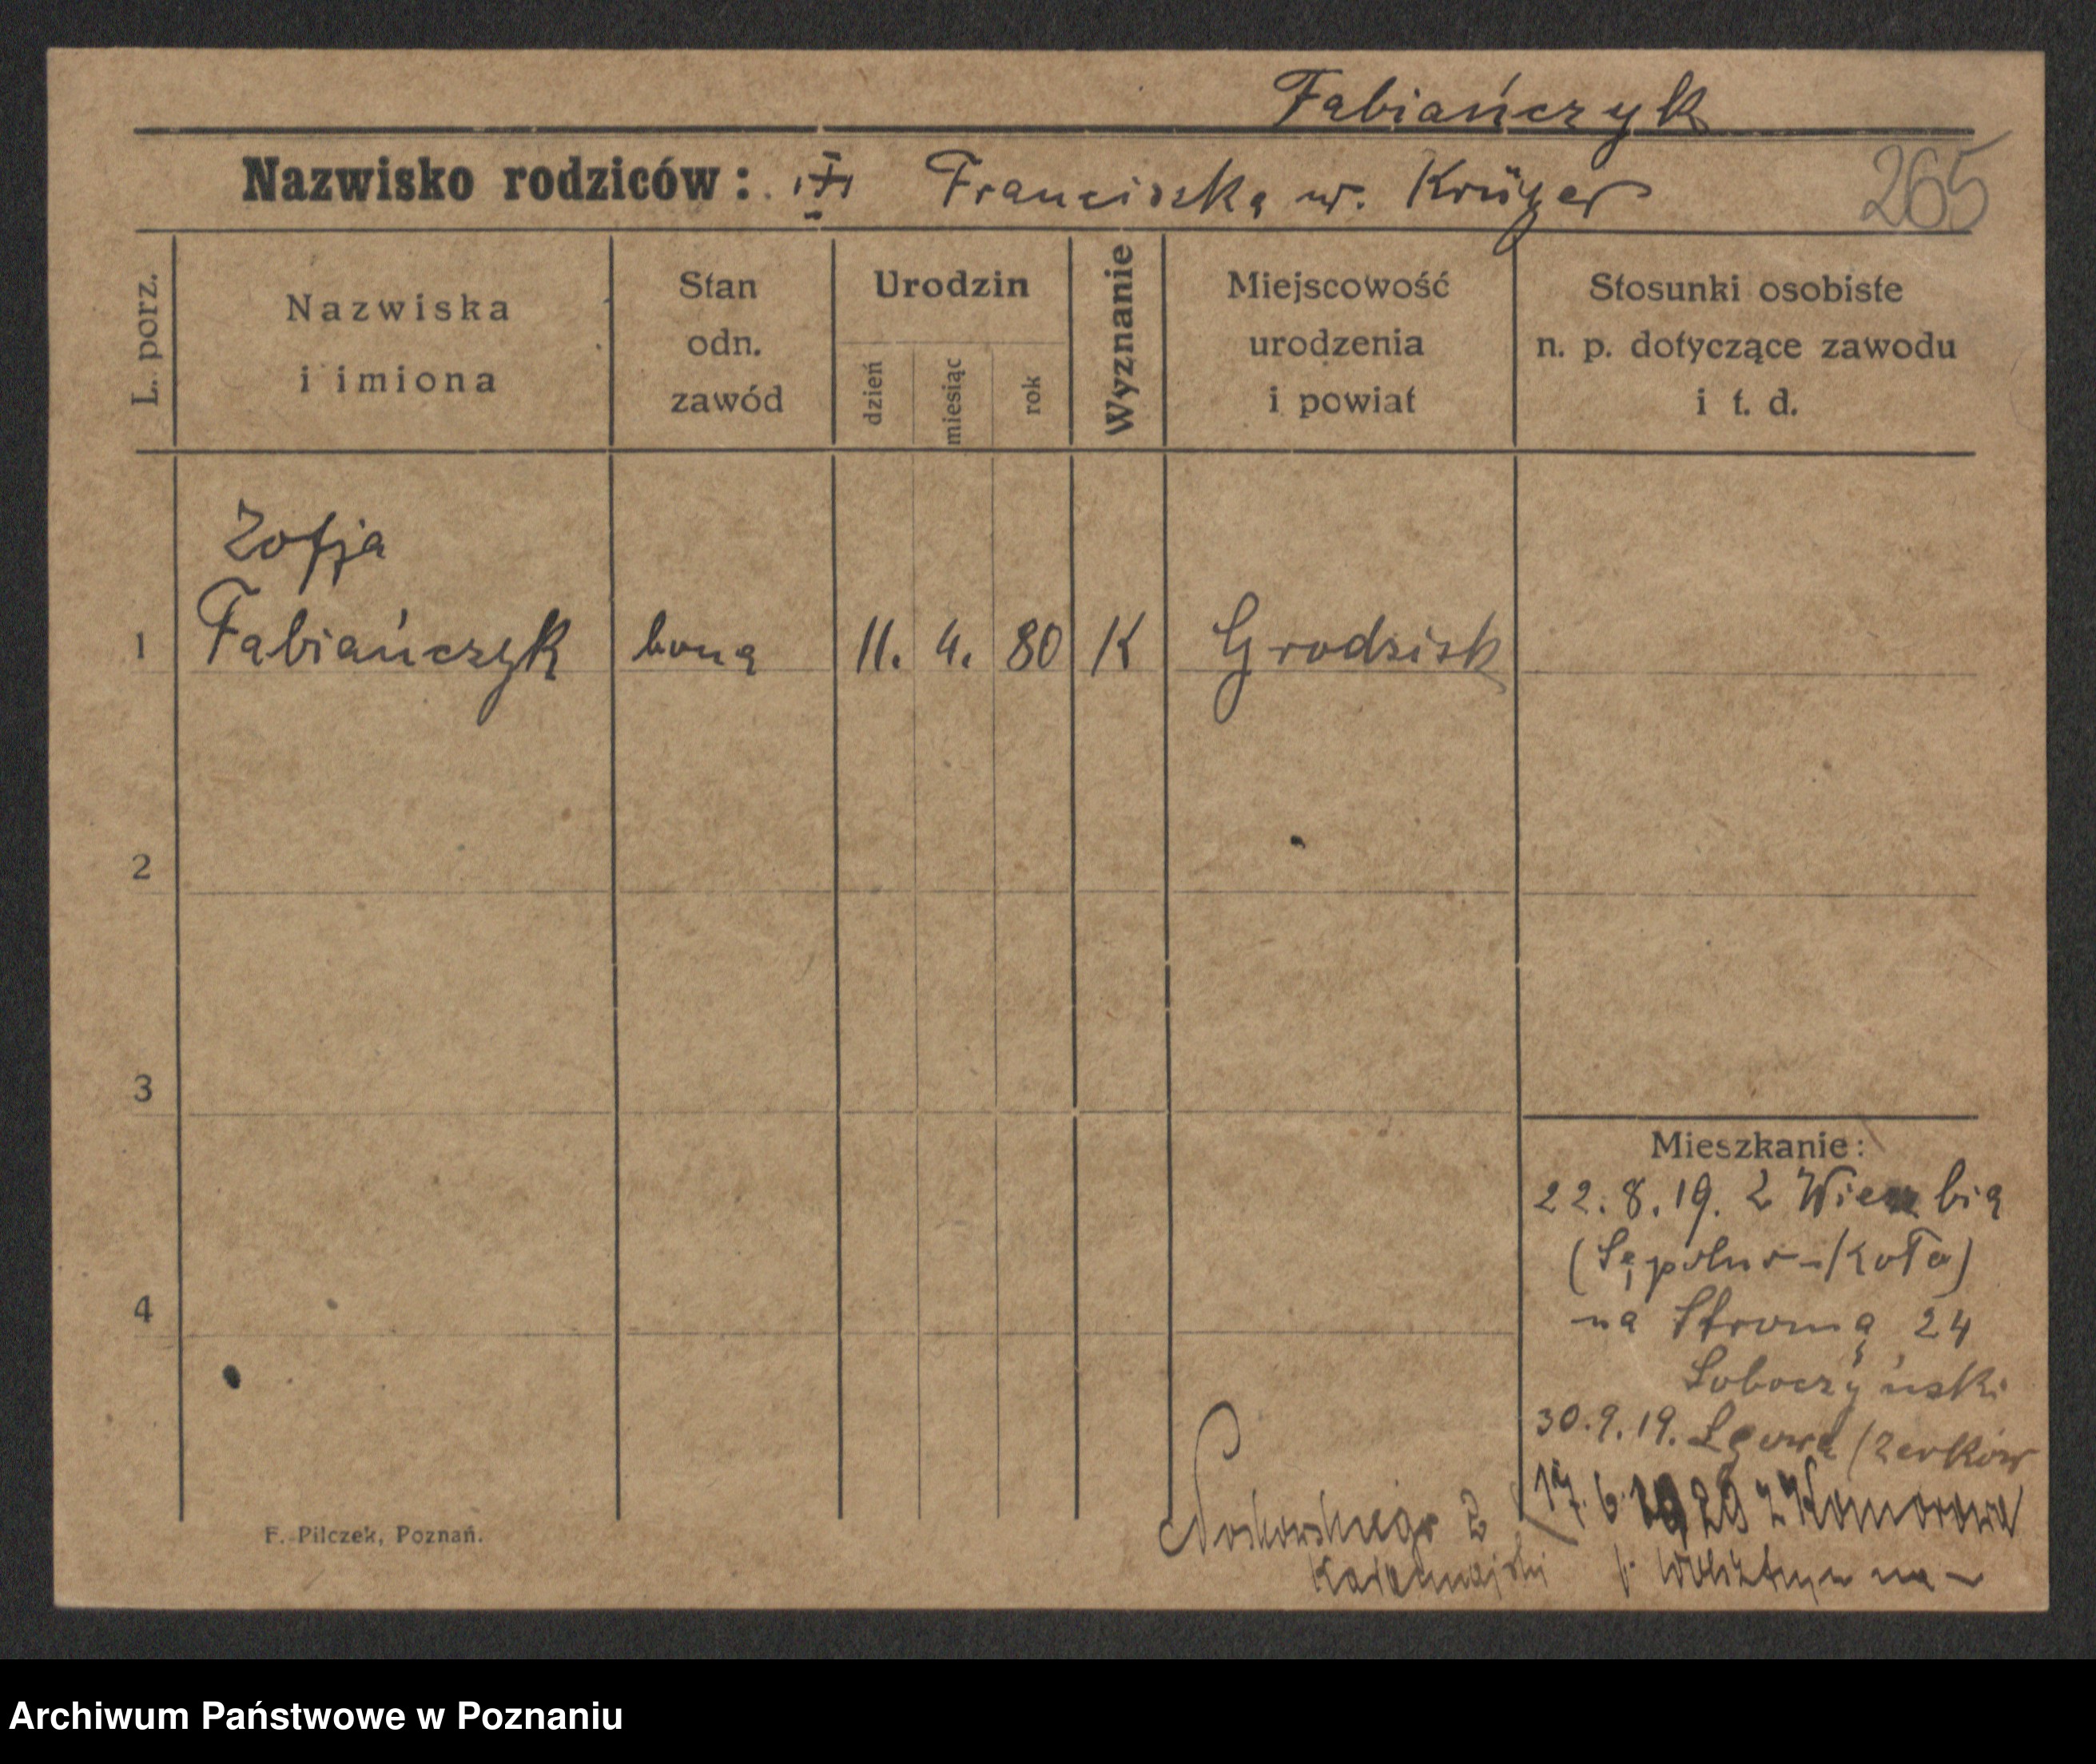 Fabiańczyk
Nazwisko rodziców: Franciszka ur. Krüger
265
L. porz.
Nazwiska
i imiona
Stan
odn.
zawód
Urodzin
dzień
miesiąc
rok
Wyznanie
Miejscowość
urodzenia
i powiat
Stosunki osobiste
n. p. dotyczące zawodu
i t. d.
Zofja
1 Fabiańczyk bona 11. 4. 80 K Grodzisk
2
3
4
Mieszkanie:
22.8.19. z
na Stromą 24
Soboczyński
30.9.19. Lgowa (Żerków
17.6.1929 z Komorowa
p. Wolsztyn na
Noskowskiego 2
F. Pilczek, Poznań.
Archiwum Państwowe w Poznaniu